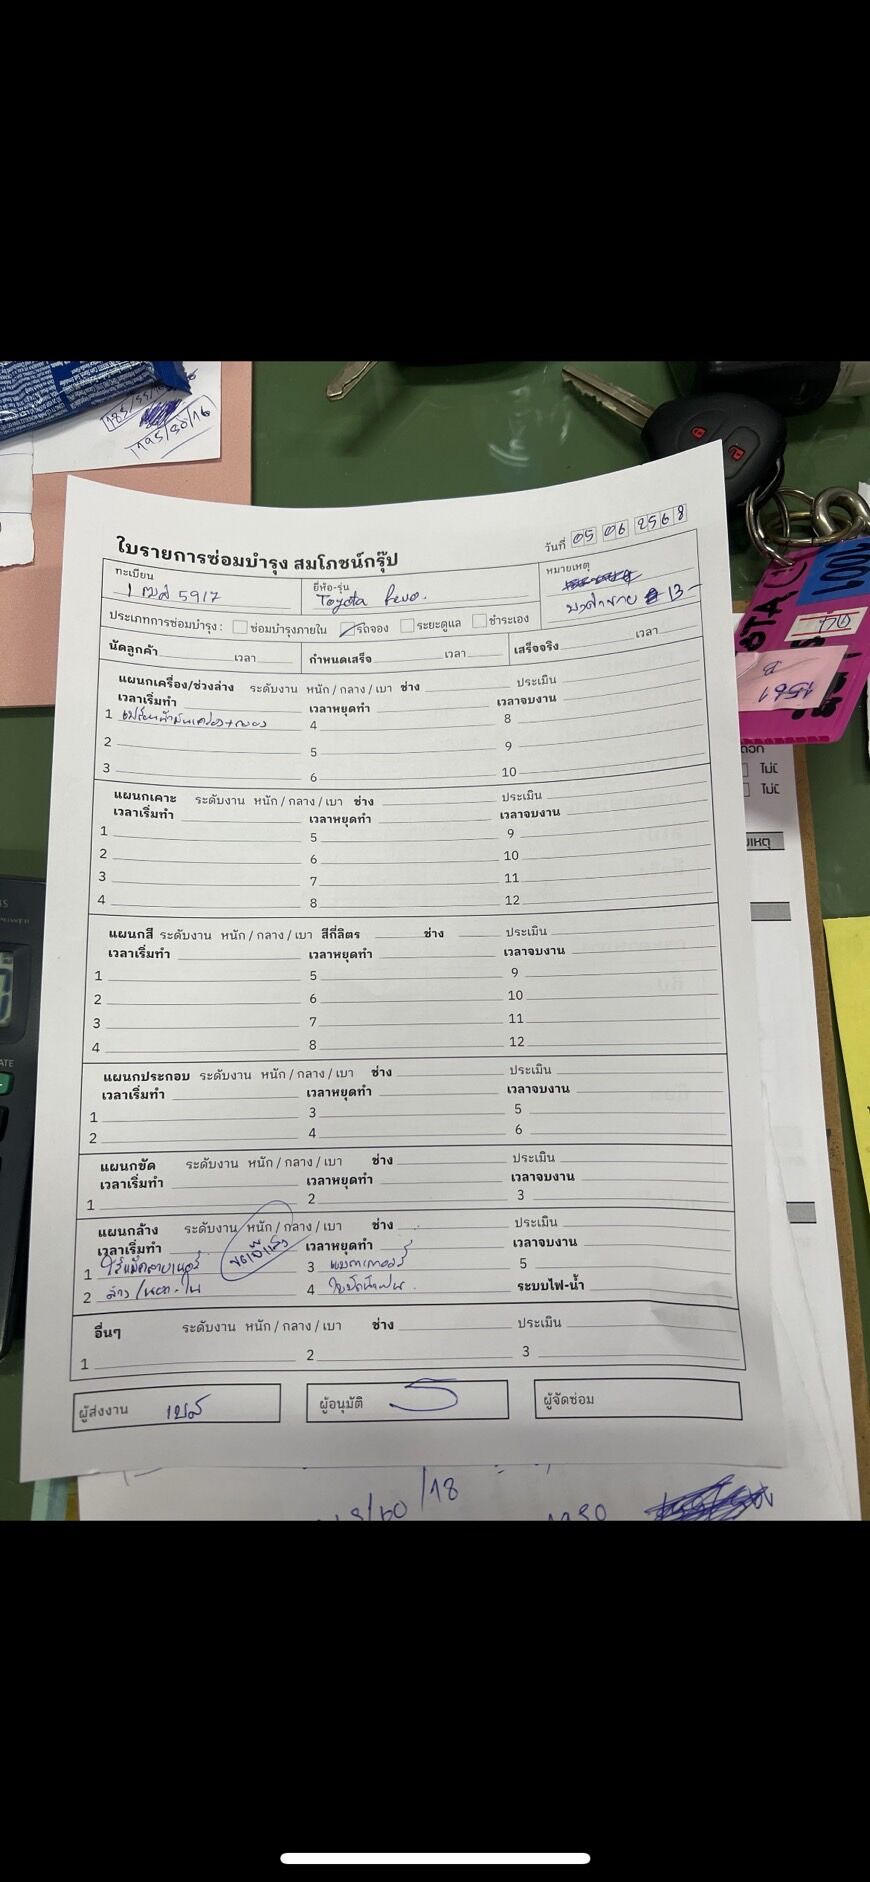 185/55/16
195/50/16
ใบรายการซ่อมบำรุง สมโภชน์กรุ๊ป
วันที่ 05 06 2568
ทะเบียน 5917
ยี่ห้อ-รุ่น Toyota Revo.
หมายเหตุ
13-
ประเภทการซ่อมบำรุง : ซ่อมบำรุงภายใน รถจอง ระยะดูแล ชำระเอง
นัดลูกค้า เวลา กำหนดเสร็จ เวลา เสร็จจริง เวลา
แผนกเครื่อง/ช่วงล่าง ระดับงาน หนัก / กลาง / เบา ช่าง ประเมิน
เวลาเริ่มทำ เวลาหยุดทำ เวลาจบงาน
1 เปลี่ยนน้ำมันเครื่อง+กรอง 4 8
2 5 9
3 6 10
แผนกเคาะ ระดับงาน หนัก / กลาง / เบา ช่าง ประเมิน
เวลาเริ่มทำ เวลาหยุดทำ เวลาจบงาน
1 5 9
2 6 10
3 7 11
4 8 12
แผนกสี ระดับงาน หนัก / กลาง / เบา สีกี่ลิตร ช่าง ประเมิน
เวลาเริ่มทำ เวลาหยุดทำ เวลาจบงาน
1 5 9
2 6 10
3 7 11
4 8 12
แผนกประกอบ ระดับงาน หนัก / กลาง / เบา ช่าง ประเมิน
เวลาเริ่มทำ เวลาหยุดทำ เวลาจบงาน
1 3 5
2 4 6
แผนกขัด ระดับงาน หนัก / กลาง / เบา ช่าง ประเมิน
เวลาเริ่มทำ เวลาหยุดทำ เวลาจบงาน
1 2 3
แผนกล้าง ระดับงาน หนัก / กลาง / เบา ช่าง ประเมิน
เวลาเริ่มทำ เวลาหยุดทำ เวลาจบงาน
1 3 5
2 ล้าง/นอก-ใน 4 ใบปัดน้ำฝน ระบบไฟ-น้ำ
อื่นๆ ระดับงาน หนัก / กลาง / เบา ช่าง ประเมิน
1 2 3
ผู้ส่งงาน เบส ผู้อนุมัติ ผู้จัดซ่อม
/60/18